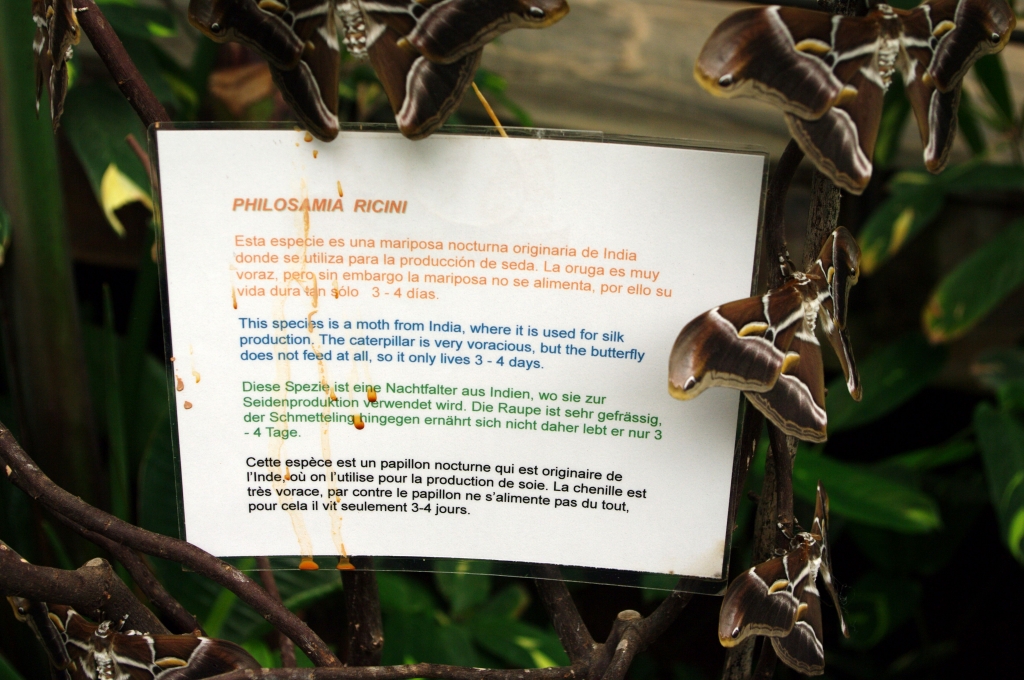 PHILOSAMIA RICINI
Esta especie es una mariposa nocturna originaria de India
donde se utiliza para la producción de seda. La oruga es muy
voraz, pero sin embargo la mariposa no se alimenta, por ello su
vida dura tan sólo 3 - 4 días.
This species is a moth from India, where it is used for silk
production. The caterpillar is very voracious, but the butterfly
does not feed at all, so it only lives 3 - 4 days.
Diese Spezie ist eine Nachtfalter aus Indien, wo sie zur
Seidenproduktion verwendet wird. Die Raupe ist sehr gefrässig,
der Schmetteling hingegen ernährt sich nicht daher lebt er nur 3
- 4 Tage.
Cette espèce est un papillon nocturne qui est originaire de
l'Inde, où on l'utilise pour la production de soie. La chenille est
très vorace, par contre le papillon ne s'alimente pas du tout,
pour cela il vit seulement 3-4 jours.